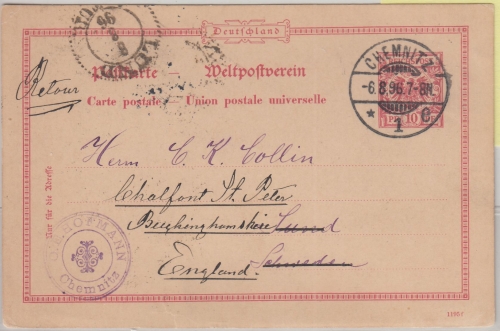 Deutschland
Postkarte Weltpostverein
Carte postale Union postale universelle
CHEMNITZ
-6.8.96.7-8N.
* 1 C.
PF 10
Retour
Herrn C. K. Collin
Chalfont St. Peter
Buckinghamshire Lund
England. Schweden
Nur für die Adresse
HOFMANN
Chemnitz